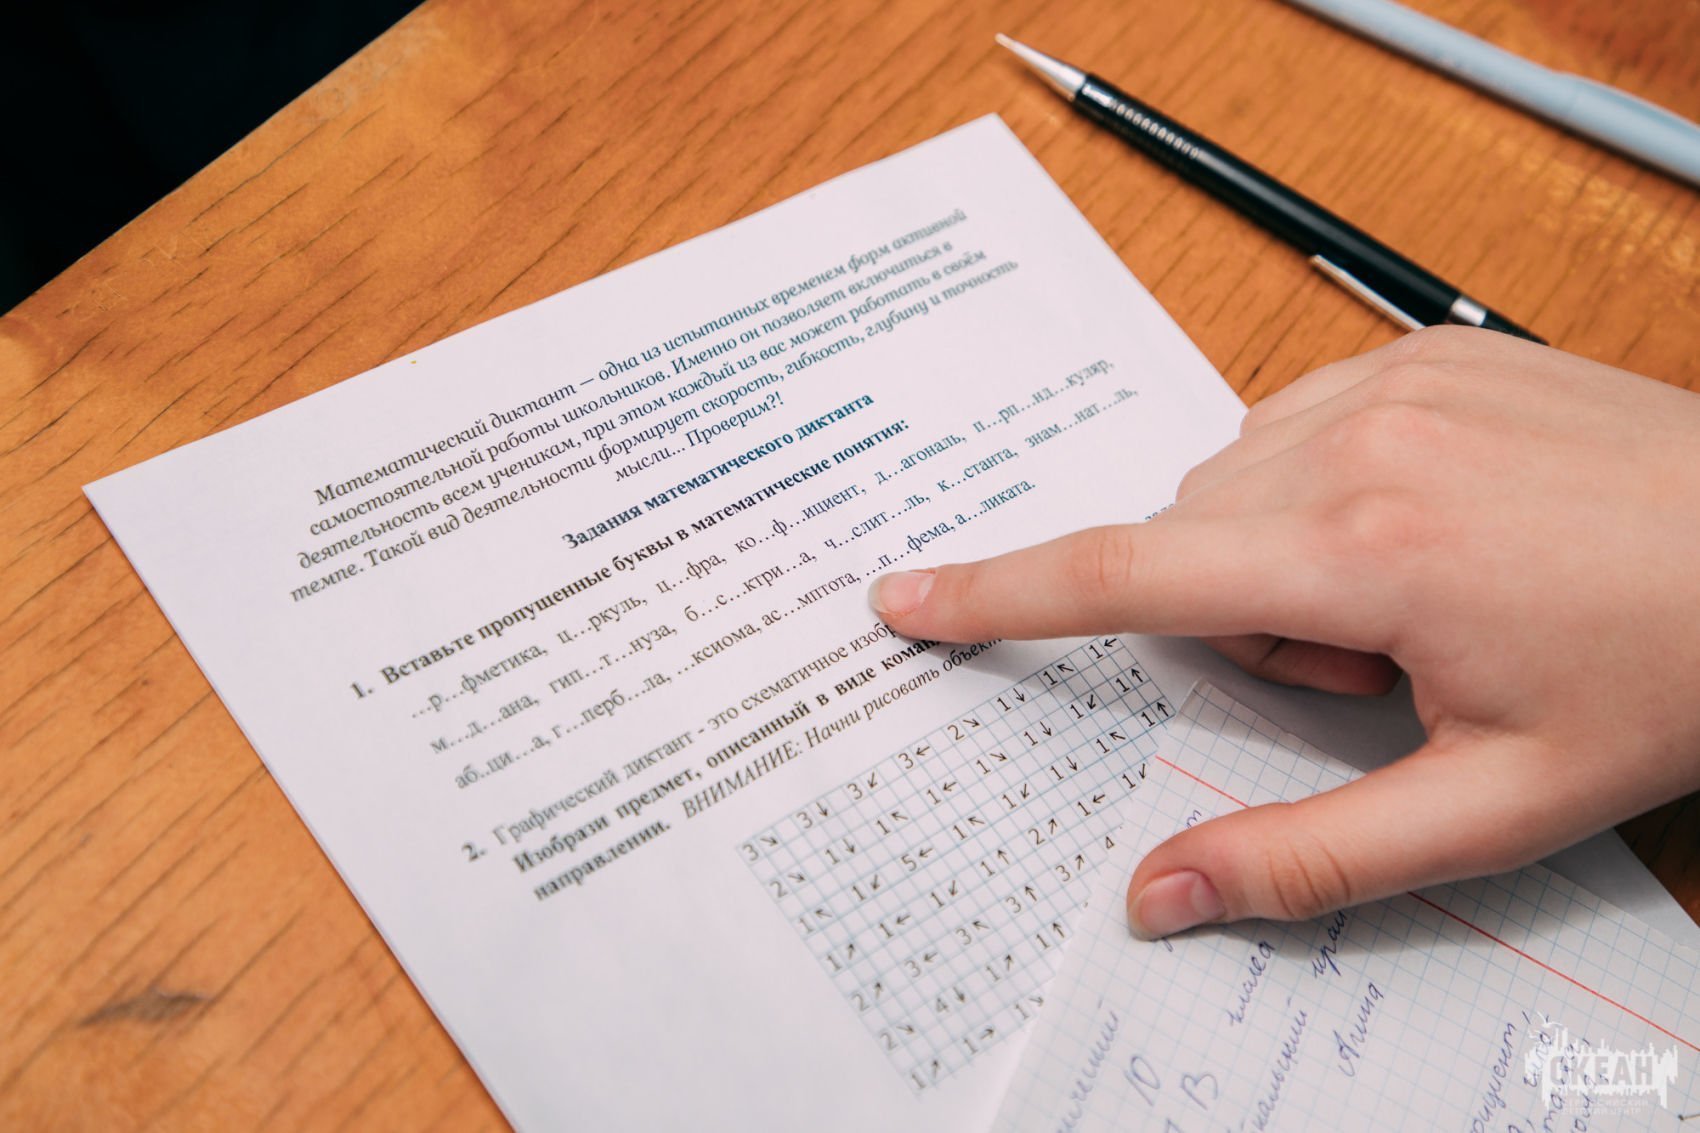 Математический диктант – одна из испытанных временем форм активной
самостоятельной работы школьников. Именно он позволяет включиться в
деятельность всем ученикам, при этом каждый из вас может работать в своём
темпе. Такой вид деятельности формирует скорость, гибкость, глубину и точность
мысли... Проверим?!
Задания математического диктанта
1. Вставьте пропущенные буквы в математические понятия:
…р…фметика, ц…ркуль, ц…фра, ко…ф…ициент, д…агональ, п…рп…нд…куляр,
м…д…ана, гип…т…нуза, б…с…ктри…а, ч…слит…ль, к…станта, знам…нат…ль,
аб..ци…а, г…перб…ла, …ксиома, ас…мптота, …п…фема, а…ликата.
2. Графический диктант - это схематичное
Изобрази предмет, описанный в виде
направлении. ВНИМАНИЕ: Начни рисовать
3↘ 3↓ 3↙ 3← 2↘ 1↓ 1↖ 1←
2↘ 1↓ 1↖ 1← 1↘ 1↓ 1↙ 1↑
1↖ 1↙ 5← 1↖ 1↙ 1↓ 1↖ 1↑
1↗ 1← 1↙ 1↑ 2↗ 1← 1↙
2↗ 3← 3↖ 3↑ 3↗ 4
2↘ 4↓ 1↗ 1↑
1↗ 1→ 1↘
10
В класса
Алина
ОКЕАН
ВСЕРОССИЙСКИЙ
ДЕТСКИЙ ЦЕНТР